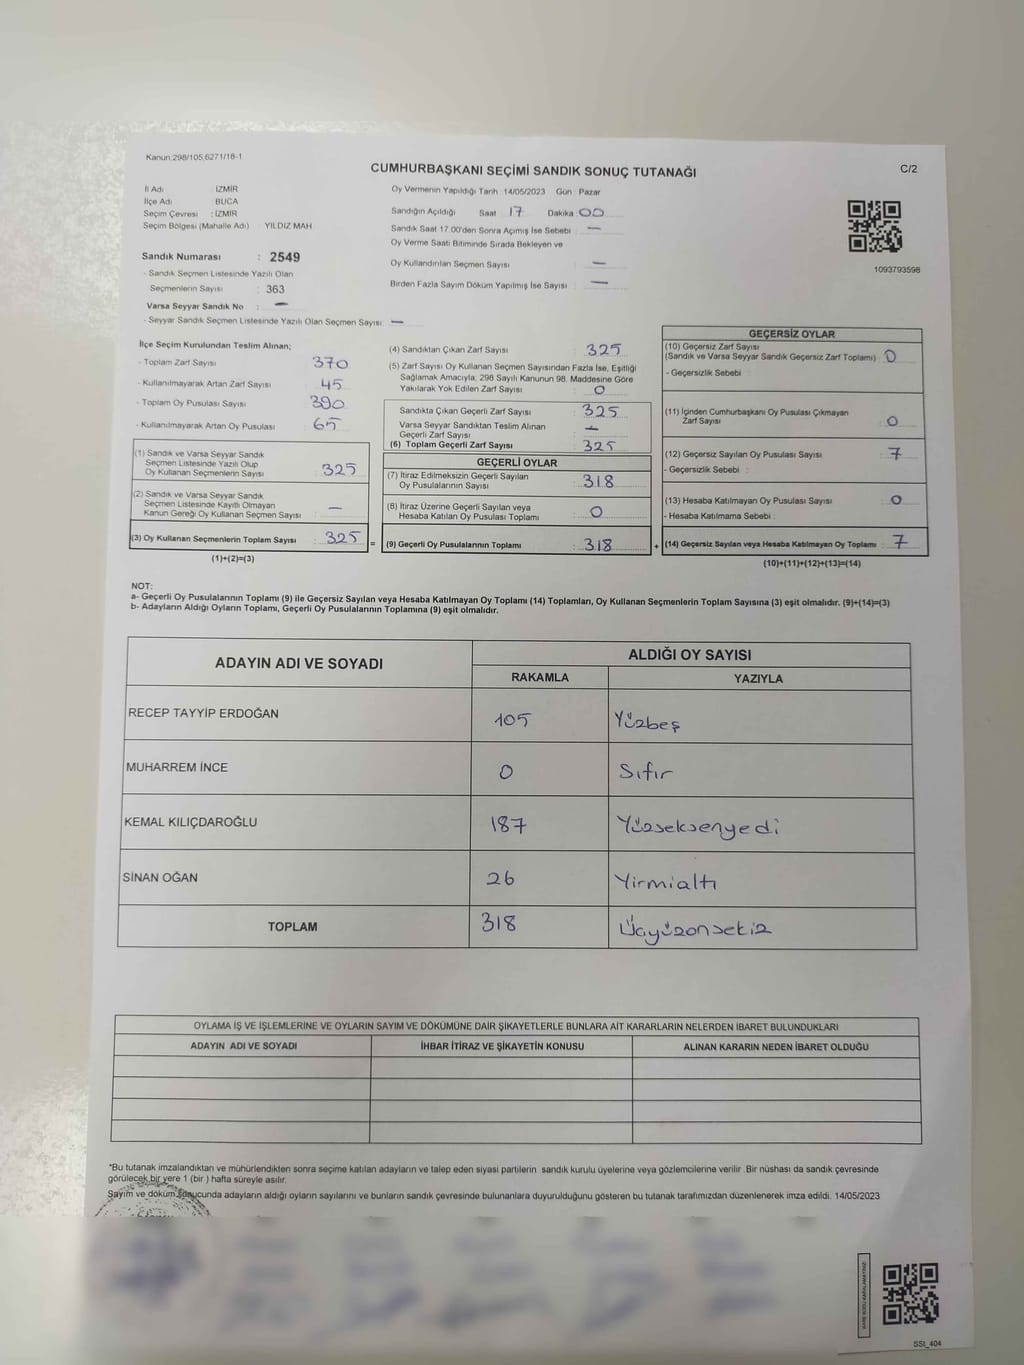 Kanun:298/105,6271/18-1
CUMHURBAŞKANI SEÇİMİ SANDIK SONUÇ TUTANAĞI
C/2
İl Adı : İZMİR
İlçe Adı : BUCA
Seçim Çevresi : İZMİR
Seçim Bölgesi (Mahalle Adı) : YILDIZ MAH
Sandık Numarası : 2549
- Sandık Seçmen Listesinde Yazılı Olan
Seçmenlerin Sayısı : 363
Varsa Seyyar Sandık No : —
- Seyyar Sandık Seçmen Listesinde Yazılı Olan Seçmen Sayısı: —
Oy Vermenin Yapıldığı Tarih :14/05/2023 Gün : Pazar
Sandığın Açıldığı Saat :17 Dakika :00
Sandık Saat 17.00'den Sonra Açımış İse Sebebi : —
Oy Verme Saati Bitiminde Sırada Bekleyen ve
Oy Kullandırılan Seçmen Sayısı : —
Birden Fazla Sayım Döküm Yapılmış İse Sayısı : —
1093793598
İlçe Seçim Kurulundan Teslim Alınan;
- Toplam Zarf Sayısı : 370
- Kullanılmayarak Artan Zarf Sayısı : 45
- Toplam Oy Pusulası Sayısı : 390
- Kullanılmayarak Artan Oy Pusulası : 65
(1) Sandık ve Varsa Seyyar Sandık
Seçmen Listesinde Yazılı Olup
Oy Kullanan Seçmenlerin Sayısı : 325
(2) Sandık ve Varsa Seyyar Sandık
Seçmen Listesinde Kayıtlı Olmayan
Kanun Gereği Oy Kullanan Seçmen Sayısı : —
(3) Oy Kullanan Seçmenlerin Toplam Sayısı : 325
(1)+(2)=(3)
=
(4) Sandıktan Çıkan Zarf Sayısı : 325
(5) Zarf Sayısı Oy Kullanan Seçmen Sayısından Fazla İse, Eşitliği
Sağlamak Amacıyla, 298 Sayılı Kanunun 98. Maddesine Göre
Yakılarak Yok Edilen Zarf Sayısı : 0
Sandıkta Çıkan Geçerli Zarf Sayısı : 325
Varsa Seyyar Sandıktan Teslim Alınan
Geçerli Zarf Sayısı : —
(6) Toplam Geçerli Zarf Sayısı : 325
GEÇERLİ OYLAR
(7) İtiraz Edilmeksizin Geçerli Sayılan
Oy Pusulalarının Sayısı : 318
(8) İtiraz Üzerine Geçerli Sayılan veya
Hesaba Katılan Oy Pusulası Toplamı : 0
(9) Geçerli Oy Pusulalarının Toplamı : 318
+
GEÇERSİZ OYLAR
(10) Geçersiz Zarf Sayısı
(Sandık ve Varsa Seyyar Sandık Geçersiz Zarf Toplamı) : 0
- Geçersizlik Sebebi :
(11) İçinden Cumhurbaşkanı Oy Pusulası Çıkmayan
Zarf Sayısı : 0
(12) Geçersiz Sayılan Oy Pusulası Sayısı : 7
- Geçersizlik Sebebi :
(13) Hesaba Katılmayan Oy Pusulası Sayısı : 0
- Hesaba Katılmama Sebebi :
(14) Geçersiz Sayılan veya Hesaba Katılmayan Oy Toplamı : 7
(10)+(11)+(12)+(13)=(14)
NOT:
a- Geçerli Oy Pusulalarının Toplamı (9) ile Geçersiz Sayılan veya Hesaba Katılmayan Oy Toplamı (14) Toplamları, Oy Kullanan Seçmenlerin Toplam Sayısına (3) eşit olmalıdır. (9)+(14)=(3)
b- Adayların Aldığı Oyların Toplamı, Geçerli Oy Pusulalarının Toplamına (9) eşit olmalıdır.
ADAYIN ADI VE SOYADI
ALDIĞI OY SAYISI
RAKAMLA
YAZIYLA
RECEP TAYYİP ERDOĞAN 105 Yüzbeş
MUHARREM İNCE 0 Sıfır
KEMAL KILIÇDAROĞLU 187 Yüzseksenyedi
SİNAN OĞAN 26 Yirmialtı
TOPLAM 318 Üçyüzonsekiz
OYLAMA İŞ VE İŞLEMLERİNE VE OYLARIN SAYIM VE DÖKÜMÜNE DAİR ŞİKAYETLERLE BUNLARA AİT KARARLARIN NELERDEN İBARET BULUNDUKLARI
ADAYIN ADI VE SOYADI
İHBAR İTİRAZ VE ŞİKAYETİN KONUSU
ALINAN KARARIN NEDEN İBARET OLDUĞU
*Bu tutanak imzalandıktan ve mühürlendikten sonra seçime katılan adayların ve talep eden siyasi partilerin sandık kurulu üyelerine veya gözlemcilerine verilir. Bir nüshası da sandık çevresinde
görülecek bir yere 1 (bir ) hafta süreyle asılır.
Sayım ve döküm sonucunda adayların aldığı oyların sayılarını ve bunların sandık çevresinde bulunanlara duyurulduğunu gösteren bu tutanak tarafımızdan düzenlenerek imza edildi. 14/05/2023
KARE KODU KARALAMAYINIZ
SSt_404